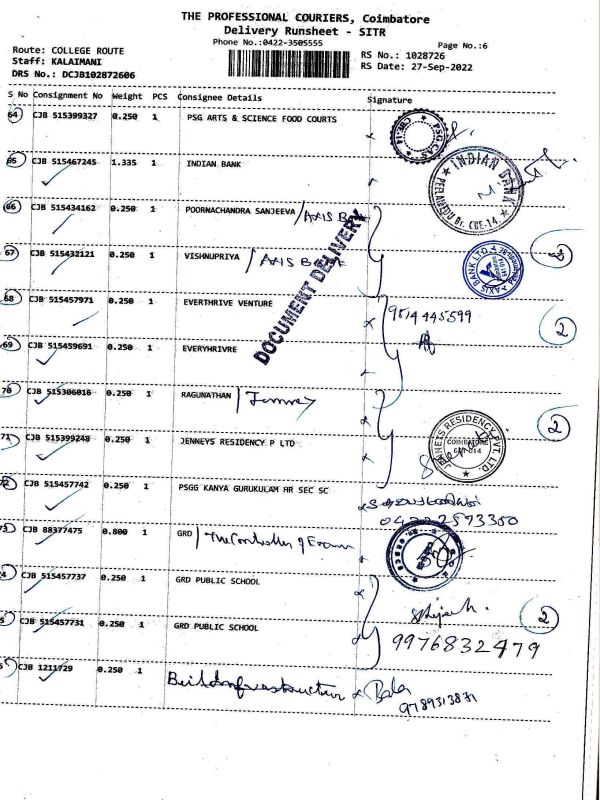 THE PROFESSIONAL COURIERS, Coimbatore
Delivery Runsheet - SITR
Phone No.:0422-3505555
Page No.:6
Route: COLLEGE ROUTE
Staff: KALAIMANI
DRS No.: DCJB102872606
RS No.: 1028726
RS Date: 27-Sep-2022
S No Consignment No Weight PCS Consignee Details Signature
64 CJB 515399327 0.250 1 PSG ARTS & SCIENCE FOOD COURTS
65 CJB 515467245 1.335 1 INDIAN BANK
INDIAN BANK
PEELAMEDU Br. CBE-14.
66 CJB 515434162 0.250 1 POORNACHANDRA SANJEEVA / AXIS Bank
67 CJB 515432121 0.250 1 VISHNUPRIYA / AXIS BANK
AXIS BANK LTD.
2
DOCUMENT DELIVERY
68 CJB 515457971 0.250 1 EVERTHRIVE VENTURE
9514445599
2
69 CJB 515459691 0.250 1 EVERYHRIVRE
70 CJB 515306016 0.250 1 RAGUNATHAN / Jenney
2
71 CJB 515399248 0.250 1 JENNEYS RESIDENCY P LTD
JENNEYS RESIDENCY PVT. LTD.
COIMBATORE
641 014
72 CJB 515457742 0.250 1 PSGG KANYA GURUKULAM HR SEC SC
0422 2573350
73 CJB 88377475 0.800 1 GRD / The Controller of Exam
4 CJB 515457737 0.250 1 GRD PUBLIC SCHOOL
2
5 CJB 515457731 0.250 1 GRD PUBLIC SCHOOL
9976832479
CJB 1211729 0.250 1 Buildinfrastructure Bala
9789313831